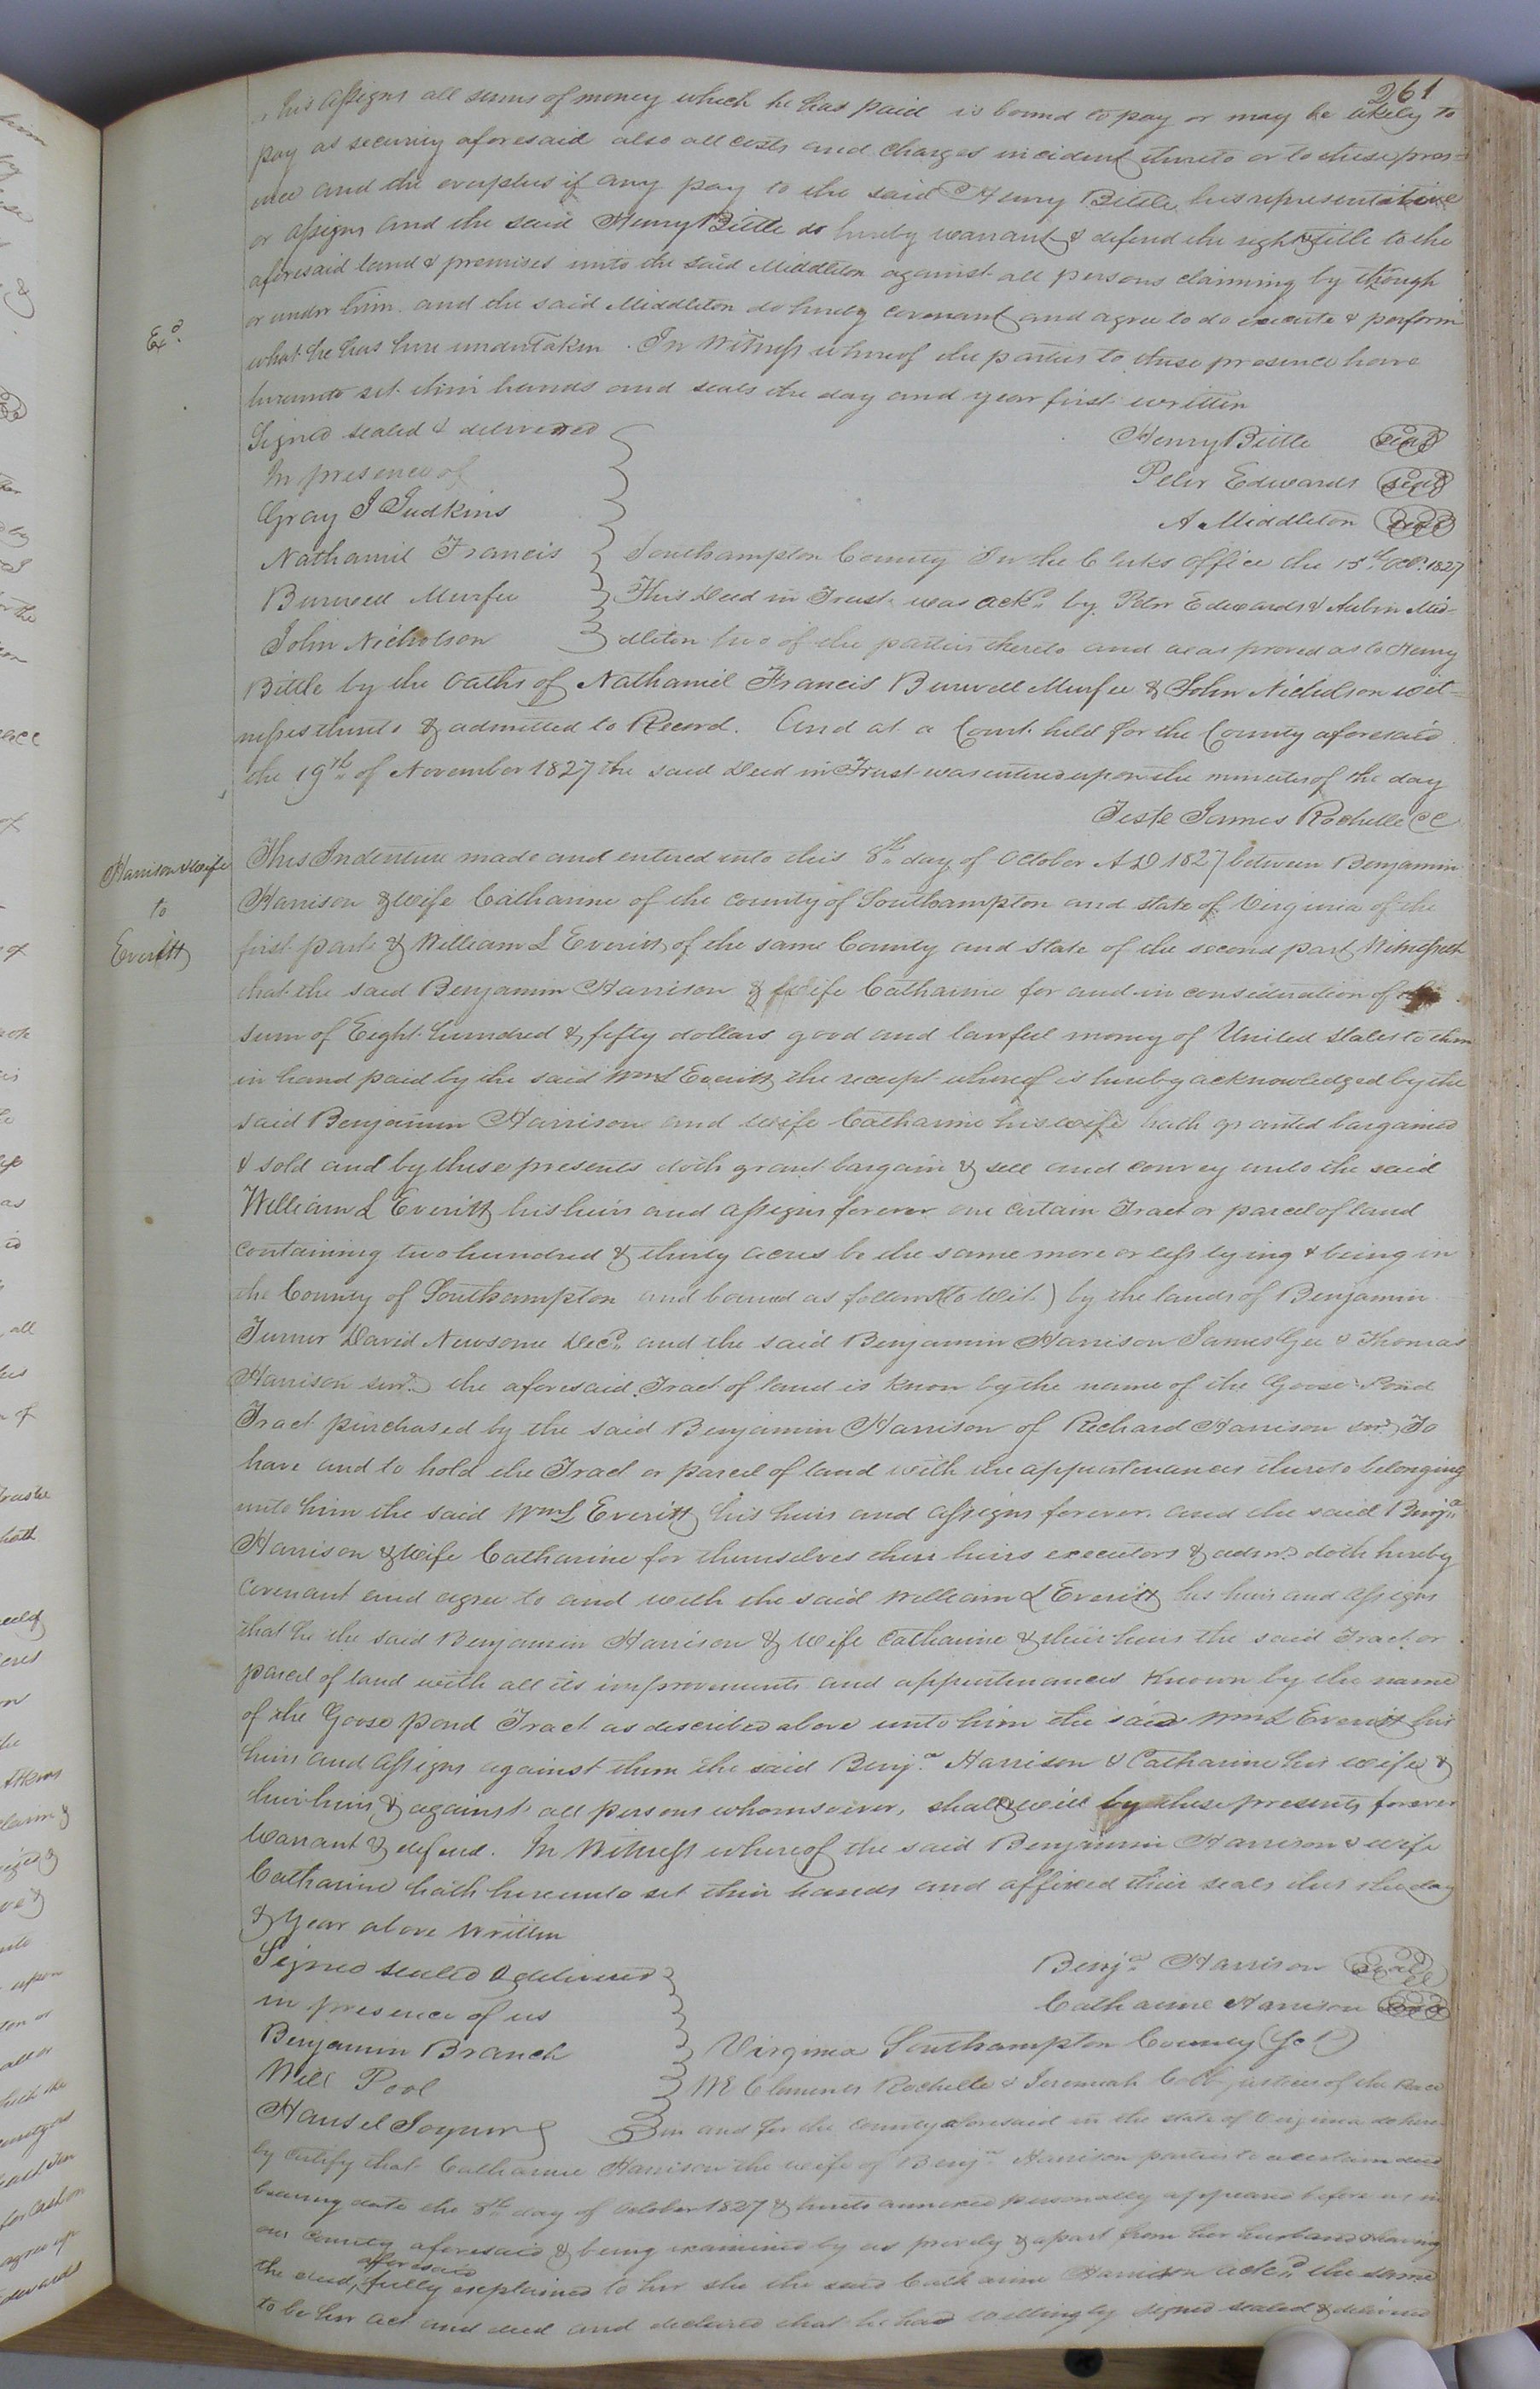 261
his assigns all sums of money which he has paid is bound to pay or may be likely to
pay as security aforesaid also all costs and charges incident thereto or to these pres=
ence and the overplus if any pay to the said Henry Bittle his representative
or assigns and the said Henry Bittle do hereby warrant & defend the right & title to the
aforesaid land & premises unto the said Middleton against all persons claiming by though
or under him and the said Middleton do hereby covenant and agree to do execute & perform
Exd.
what he has here undertaken. In Witness whereof the parties to these presence have
hereunto set their hands and seals the day and year first written
Signed sealed & delivered
In presence of
Gray J Judkins
Nathaniel Francis
Burwell Murfee
John Nicholson
Henry Bittle seal
Peter Edwards seal
A. Middleton seal
Southampton County In the Clerks office the 15th Octr. 1827
This Deed in Trust was ackd. by Peter Edwards & Aubin Mid-
dleton two of the parties thereto and was proved as to Henry
Bittle by the Oaths of Nathaniel Francis Burwell Murfee & John Nicholson wit=
nesses thereto & admitted to Record. And at a Court held for the County aforesaid
the 19th of November 1827 the said Deed in Trust was entered upon the minutes of the day
Teste James Rochelle CC
Harrison & wife
to
Everitt
This Indenture made and entered into this 8th day of October AD 1827 between Benjamin
Harrison & Wife Catharine of the County of Southampton and state of Virginia of the
first part & William L Everitt of the same County and State of the second part Witnesseth
that the said Benjamin Harrison & Wife Catharine for and in consideration of the
sum of Eight hundred & fifty dollars good and lawful money of United States to them
in hand paid by the said Wm L Everitt the receipt whereof is hereby acknowledged by the
said Benjamin Harrison and wife Catharine his wife hath granted bargained
& sold and by these presents doth grant bargain & sell and convey unto the said
William L Everitt his heirs and assigns forever one certain Tract or parcel of land
containing two hundred & thirty acres be the same more or less lying & being in
the County of Southampton and bound as follows (to Wit) by the lands of Benjamin
Turner David Newsome Decd. and the said Benjamin Harrison James Gee & Thomas
Harrison senr. the aforesaid Tract of land is know by the name of the Goose Pond
Tract purchased by the said Benjamin Harrison of Richard Harrison snr. To
have and to hold the Tract or parcel of land with the appurtenances thereto belonging
unto him the said Wm L Everitt his heirs and assigns forever and the said Benja.
Harrison & Wife Catharine for themselves their heirs executors & admrs doth hereby
Covenant and agree to and with the said William L Everitt his heirs and assigns
that he the said Benjamin Harrison & Wife Catharine & their heirs the said Tract or
parcel of land with all its improvements and appurtenances known by the name
of the Goose pond Tract as described above unto him the said Wm L Everitt his
heirs and assigns against them the said Benja. Harrison & Catharine his wife &
their heirs & against all persons whomsoever, shall & will by these presents forever
Warrant & defend. In Witness whereof the said Benjamin Harrison & wife
Catharine hath hereunto set their hands and affixed their seals this the day
& Year above written
Signed sealed & delivered
in presence of us
Benjamin Branch
Will Pool
Benja. Harrison seal
Catharine Harrison seal
Virginia Southampton County (Sct)
We Clements Rochelle & Jeremiah Cobb justices of the Peace
in and for the County aforesaid in the state of Virginia do here
by certify that Catharine Harrison the wife of Benja. Harrison parties to a certain deed
bearing date the 8th day of October 1827 & hereto annexed personally appeared before us in
our County aforesaid & being examined by us privily & apart from her husband & having
the deed aforesaid fully explained to her she the said Catharine Harrison ackd. the same
to be her act and deed and declared that he had willingly signed sealed & delivered